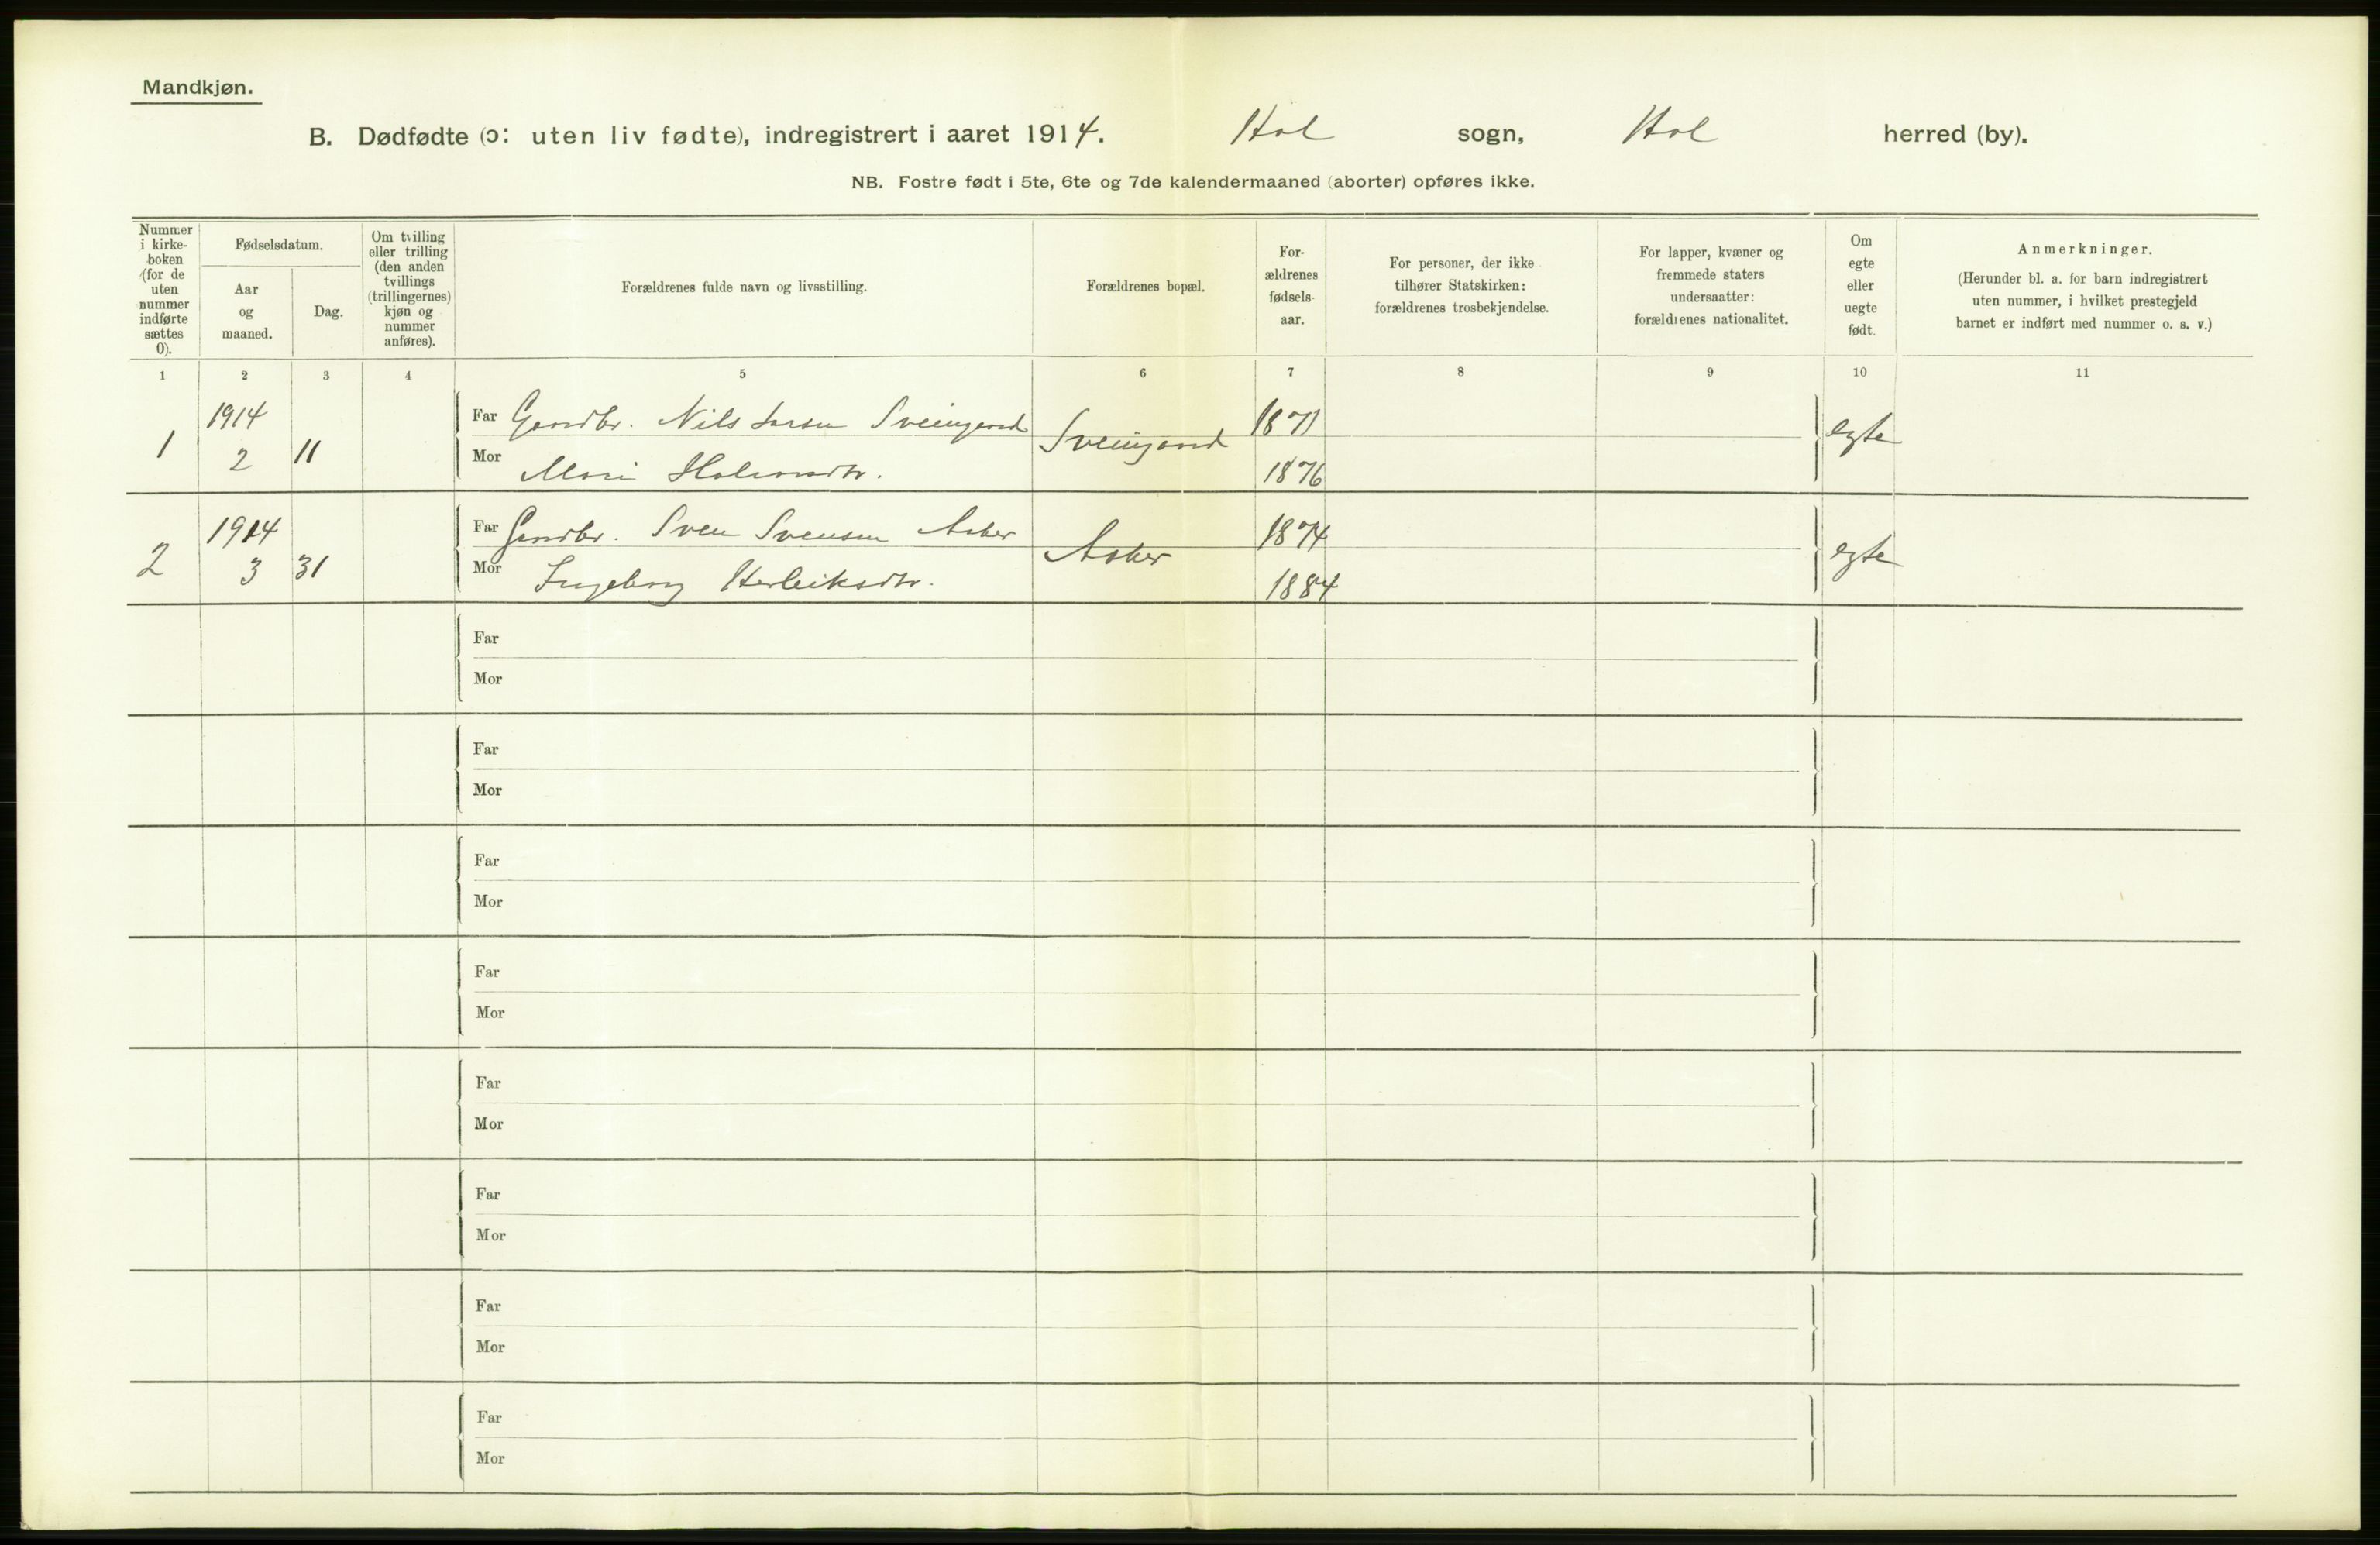 Mandkjøn.
B. Dødfødte (ɔ: uten liv fødte), indregistrert i aaret 1914. Hol sogn, Hol herred (by).
NB. Fostre født i 5te, 6te og 7de kalendermaaned (aborter) opføres ikke.
Nummer i kirkeboken (for de uten nummer indførte sættes 0).
Fødselsdatum.
Aar og maaned.
Dag.
Om tvilling eller trilling (den anden tvillings (trillingernes) kjøn og nummer anføres).
Forældrenes fulde navn og livsstilling.
Forældrenes bopæl.
Forældrenes fødselsaar.
For personer, der ikke tilhører Statskirken: forældrenes trosbekjendelse.
For lapper, kvæner og fremmede staters undersaatter: forældrenes nationalitet.
Om egte eller uegte født.
Anmerkninger.
(Herunder bl. a. for barn indregistrert uten nummer, i hvilket prestegjeld barnet er indført med nummer o. s. v.)
1 2 3 4 5 6 7 8 9 10 11
1 1914 2 11 Far Gaardbr. Nils Larsen Sveingaard Sveingaard 1871 egte
Mor Mari Halvorsdtr. 1876
2 1914 3 31 Far Gaardbr. Sven Svensen 1874 egte
Mor Ingeborg Herleiksdtr. 1884
Far
Mor
Far
Mor
Far
Mor
Far
Mor
Far
Mor
Far
Mor
Far
Mor
Far
Mor